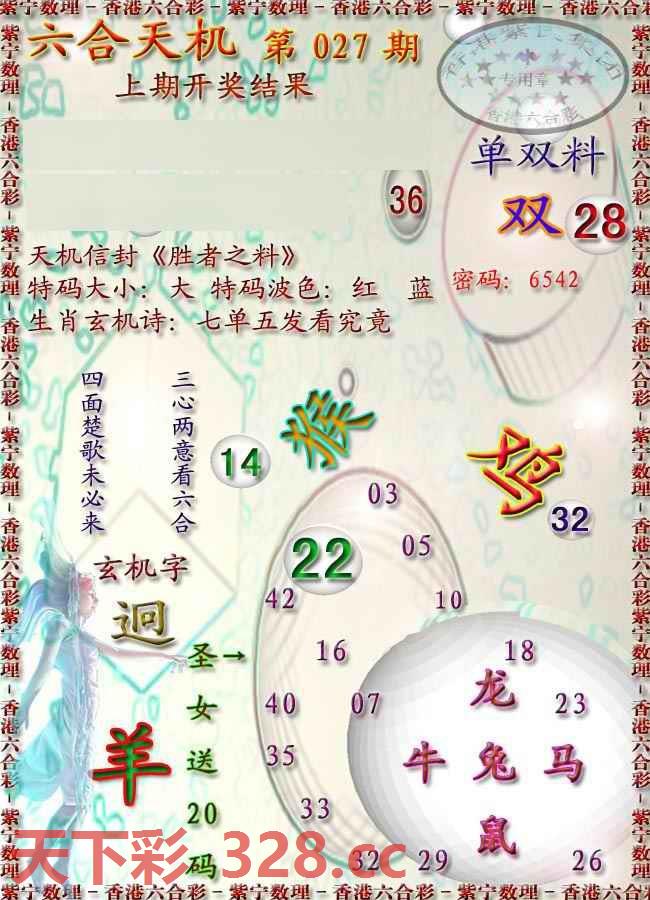 紫宁数理－香港六合彩－紫宁数理－香港六合彩－紫宁数理－香港六合彩
六合天机 第 027 期
上期开奖结果
专用章
香港六合彩
单双料
36
双 28
天机信封《胜者之料》
密码：6542
特码大小：大 特码波色：红 蓝
生肖玄机诗：七单五发看究竟
三心两意看六合
四面楚歌未必来
猴
鸡
14
32
03
22
05
玄机字
42
10
迥
圣→
16
18
女
40
07
龙
23
羊
送
35
牛 兔 马
20
33
鼠
码
32
29
26
天下彩 328.cc
紫宁数理－香港六合彩－紫宁数理－香港六合彩－紫宁数理－香港六合彩